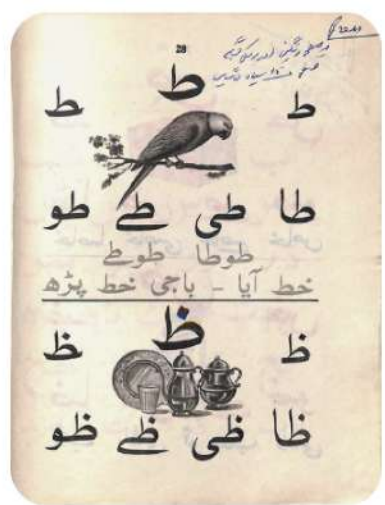 Press
28
ط ط ط
طا طی طے طو
طوطا طوطے
خط آیا - باجی خط پڑھ
ظ ظ ظ
ظا ظی ظے ظو